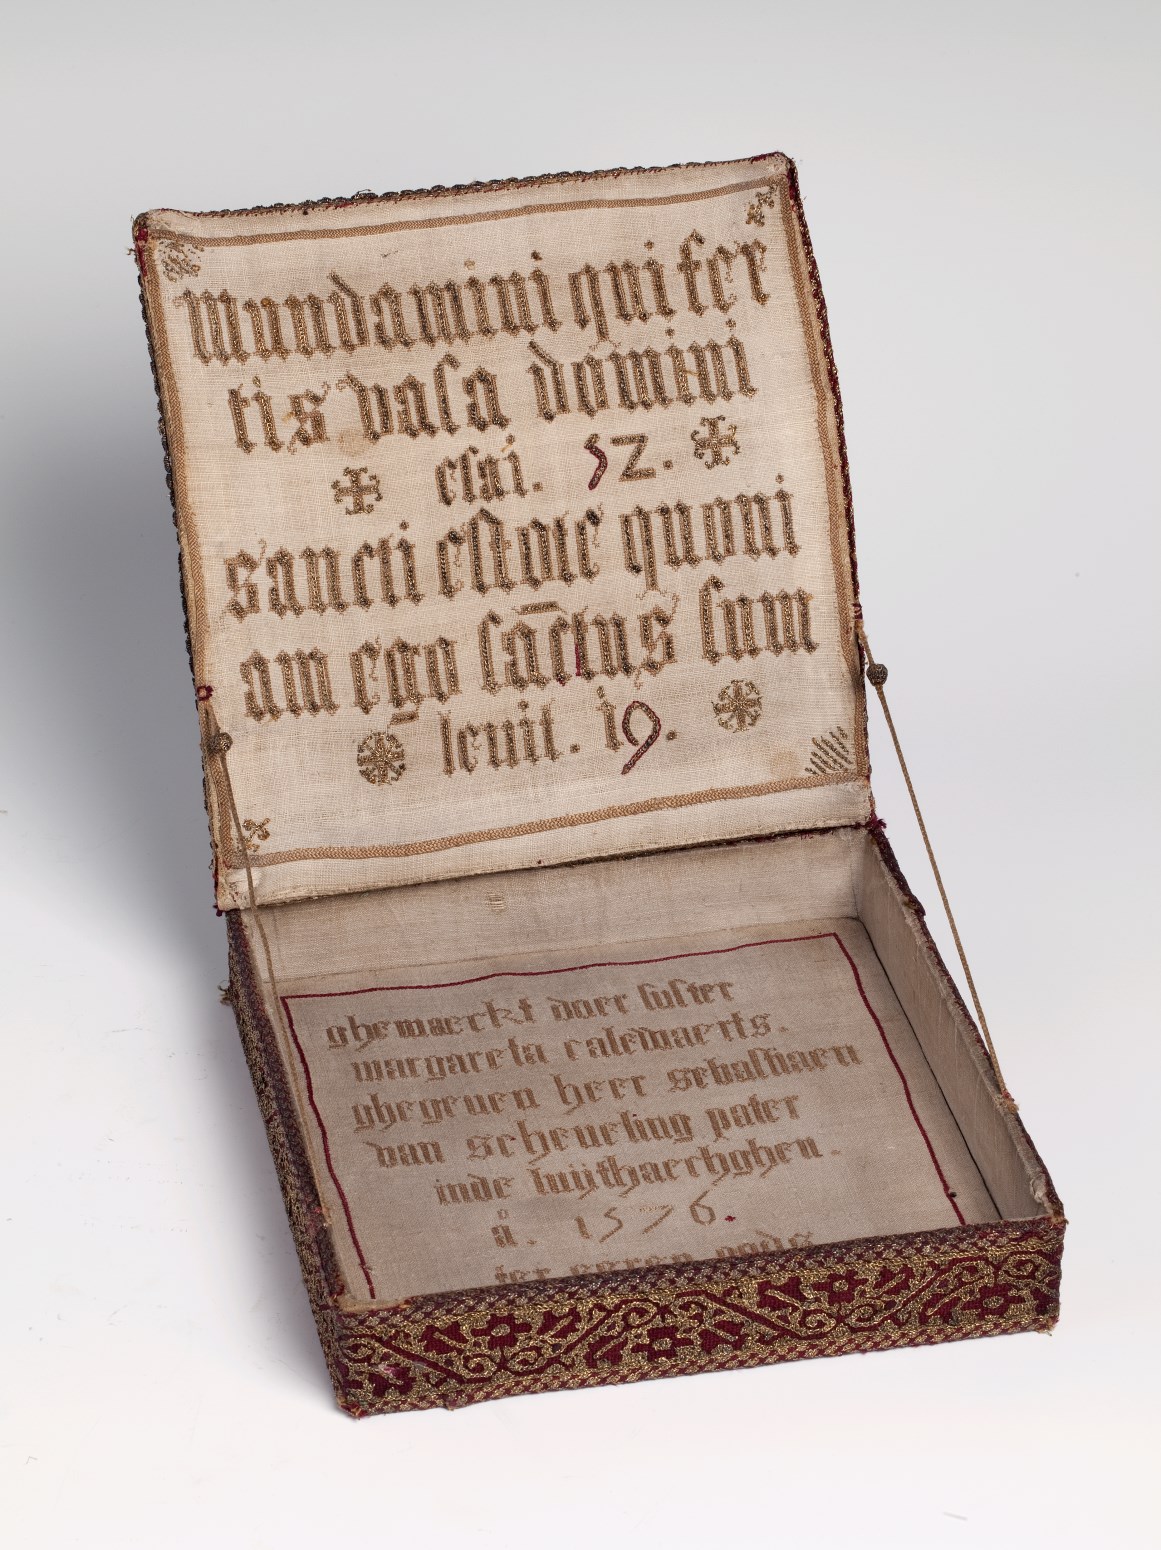 mundamini qui fer
tis vasa domini
esai. 52.
sancti estote quoni
am ego sāctus sum
leuit. 19.
ghemaerkt doer suster
margareta calewaerts.
ghegeuen heer sebastiaen
van scheueling pater
inde luijthaerhghen.
å. 1576.